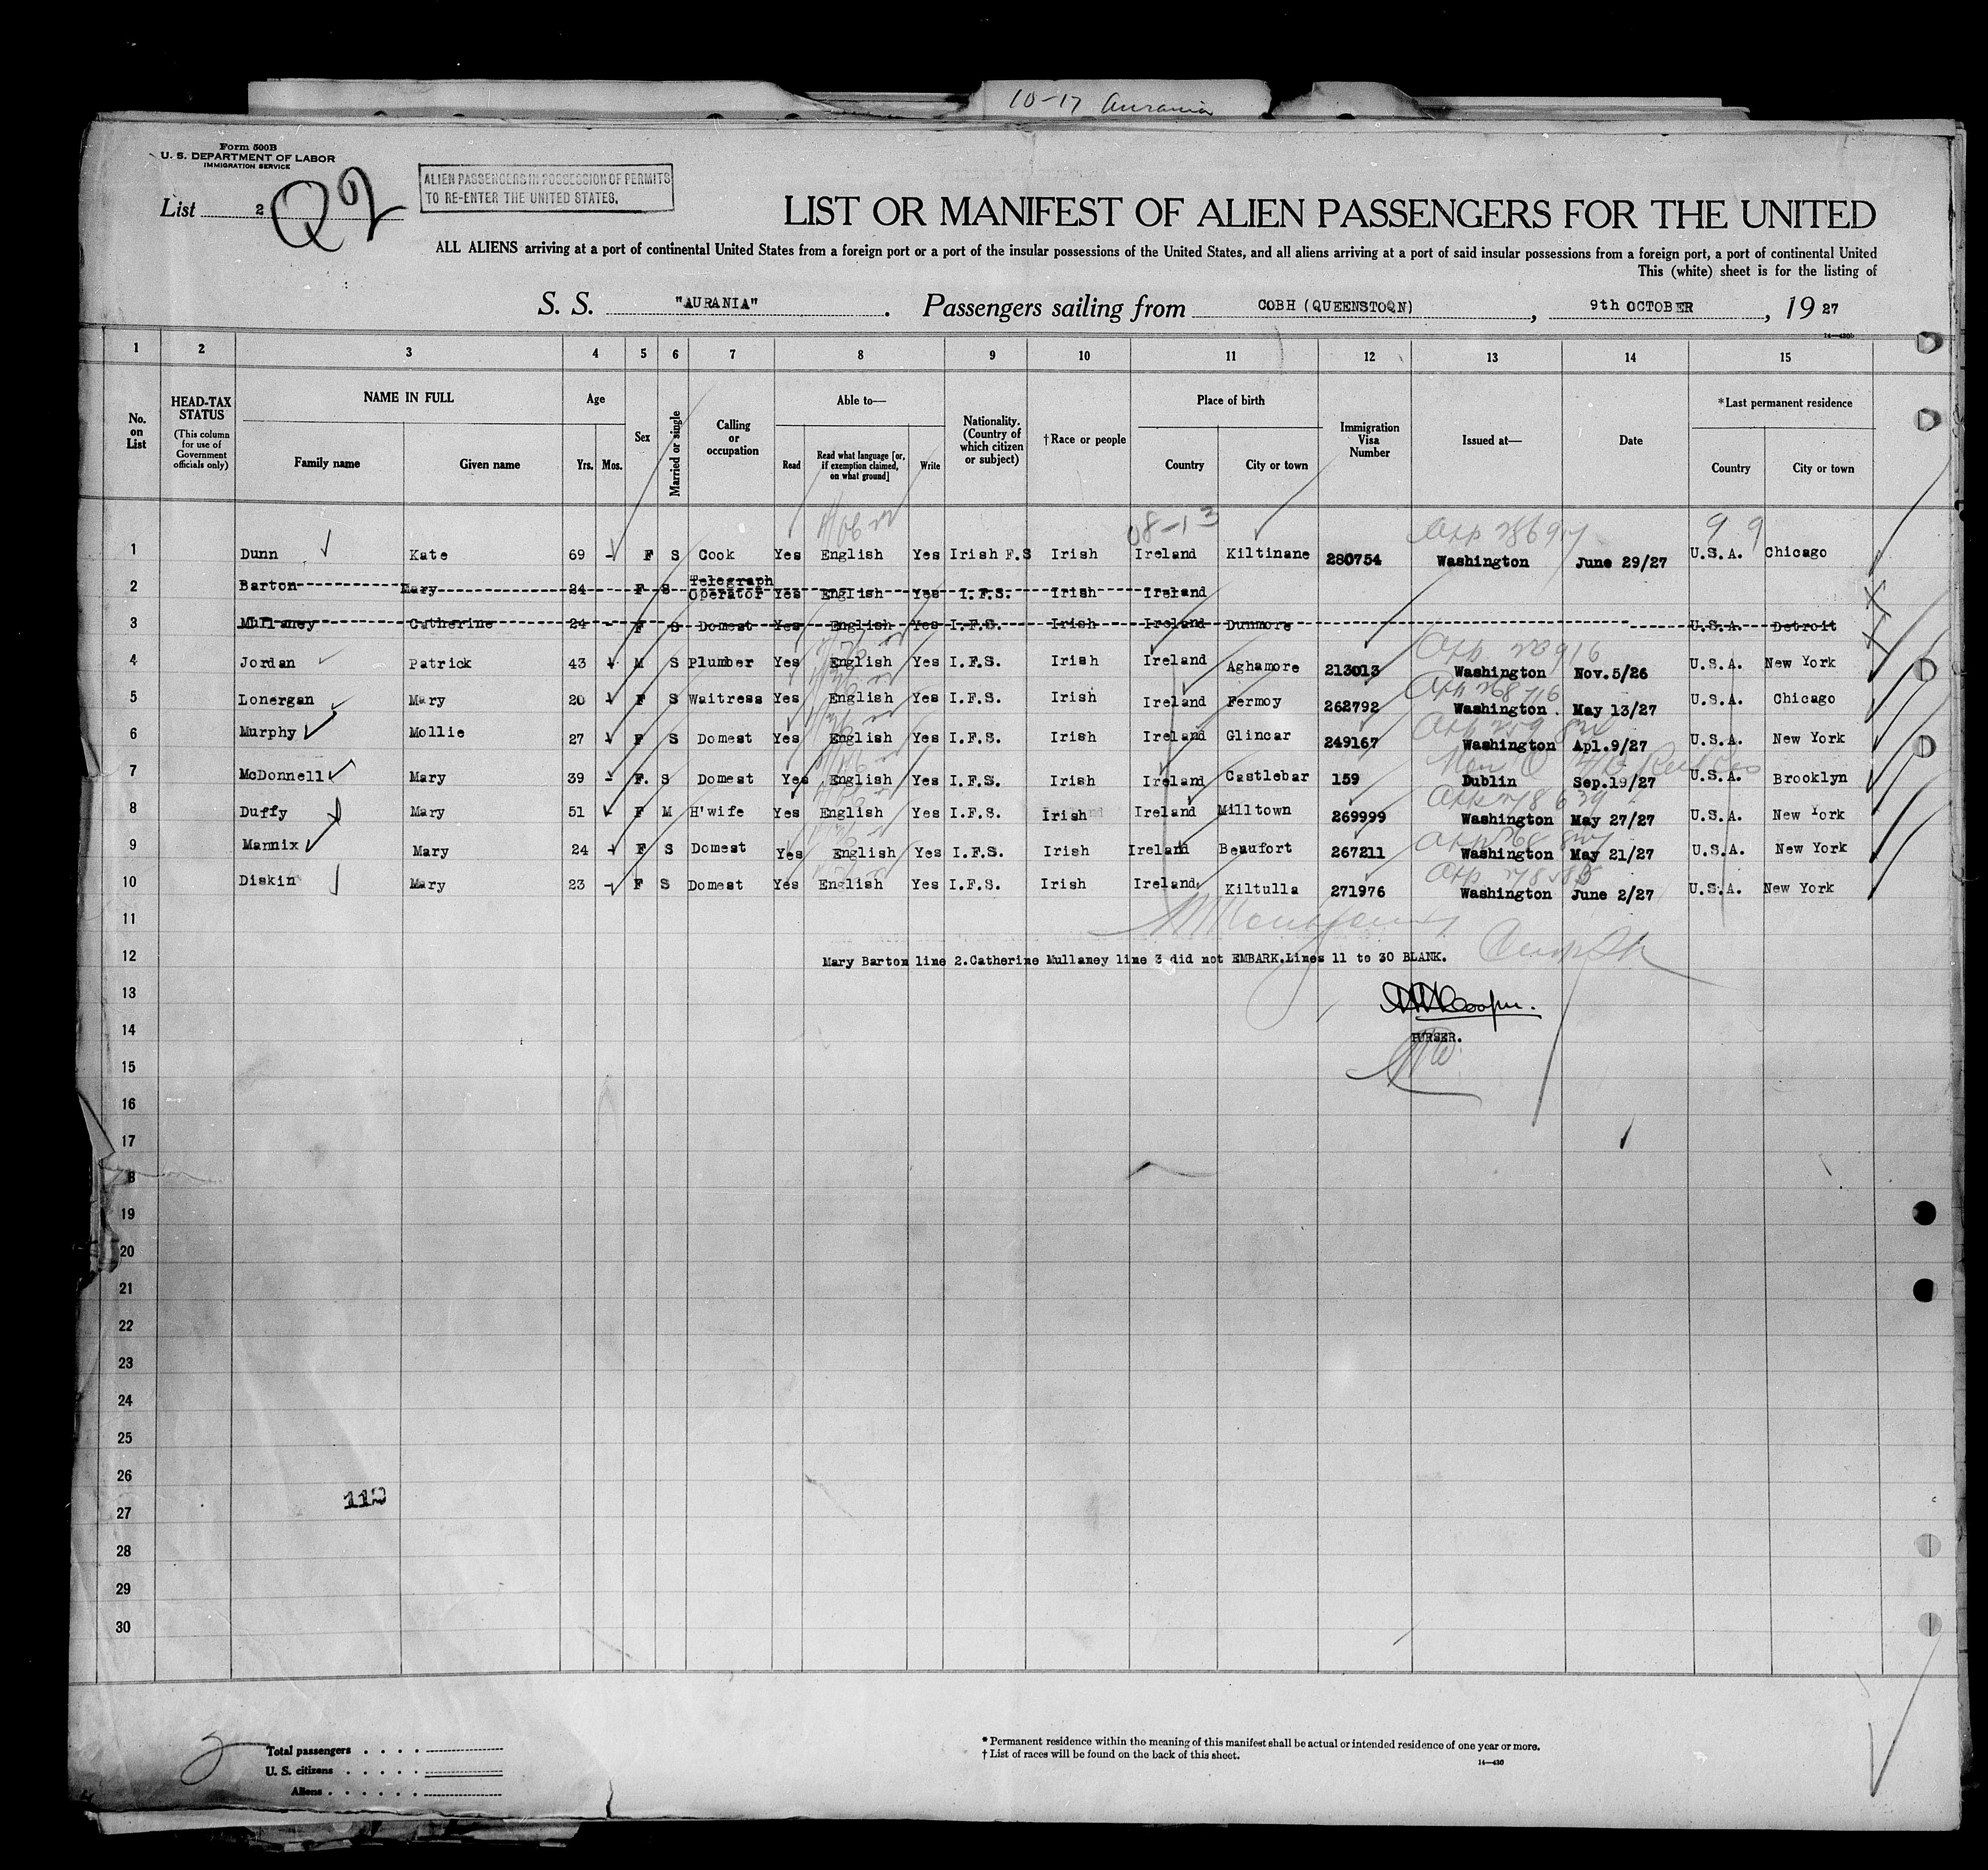 10-17 Aurania
Form 500B
U. S. DEPARTMENT OF LABOR
IMMIGRATION SERVICE
List 2
Q2
ALIEN PASSENGERS IN POSSESSION OF PERMITS
TO RE-ENTER THE UNITED STATES.
LIST OR MANIFEST OF ALIEN PASSENGERS FOR THE UNITED
ALL ALIENS arriving at a port of continental United States from a foreign port or a port of the insular possessions of the United States, and all aliens arriving at a port of said insular possessions from a foreign port, a port of continental United
This (white) sheet is for the listing of
S. S. "AURANIA". Passengers sailing from COBH (QUEENSTOQN), 9th OCTOBER, 19 27
14—430b
1 2 3 4 5 6 7 8 9 10 11 12 13 14 15
No. on List
HEAD-TAX STATUS
(This column for use of Government officials only)
NAME IN FULL
Family name Given name
Age
Yrs. Mos.
Sex
Married or single
Calling or occupation
Able to—
Read Read what language [or, if exemption claimed, on what ground] Write
Nationality. (Country of which citizen or subject)
†Race or people
Place of birth
Country City or town
Immigration Visa Number
Issued at—
Date
*Last permanent residence
Country City or town
08-13 9 9
1 Dunn Kate 69 - F S Cook Yes English Yes Irish F.S Irish Ireland Kiltinane 280754 Washington June 29/27 U.S.A. Chicago
2 Barton Mary 24 F S Telegraph Operator Yes English Yes I.F.S. Irish Ireland
3 Mullaney Catherine 24 - F S Domest Yes English Yes I.F.S. Irish Ireland Dunmore U.S.A. Detroit
4 Jordan Patrick 43 M S Plumber Yes English Yes I.F.S. Irish Ireland Aghamore 213013 Washington Nov.5/26 U.S.A. New York
5 Lonergan Mary 20 F S Waitress Yes English Yes I.F.S. Irish Ireland Fermoy 262792 Washington. May 13/27 U.S.A. Chicago
6 Murphy Mollie 27 F S Domest Yes English Yes I.F.S. Irish Ireland Glincar 249167 Washington Apl.9/27 U.S.A. New York
7 McDonnell Mary 39 - F. S Domest Yes English Yes I.F.S. Irish Ireland Castlebar 159 Dublin Sep.19/27 U.S.A. Brooklyn
8 Duffy Mary 51 F M H'wife Yes English Yes I.F.S. Irish Ireland Milltown 269999 Washington May 27/27 U.S.A. New York
9 Mannix Mary 24 - F S Domest Yes English Yes I.F.S. Irish Ireland Beaufort 267211 Washington May 21/27 U.S.A. New York
10 Diskin Mary 23 - F S Domest Yes English Yes I.F.S. Irish Ireland Kiltulla 271976 Washington June 2/27 U.S.A. New York
11
12 Mary Barton line 2.Catherine Mullaney line 3 did not EMBARK.Lines 11 to 30 BLANK.
13
14 PURSER.
15
16
17
8
19
20
21
22
23
24
25
26
112
27
28
29
30
Total passengers
U. S. citizens
Aliens
* Permanent residence within the meaning of this manifest shall be actual or intended residence of one year or more.
† List of races will be found on the back of this sheet.
14—430